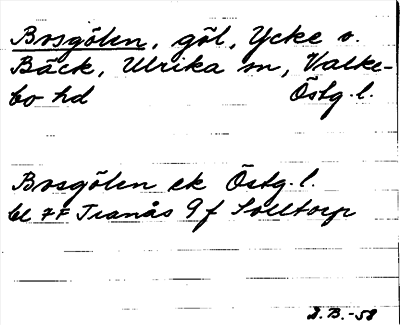 Bosgölen, göl, Ycke o.
Bäck, Ulrika sn, Valke-
bo hd Östg.l.
Bosgölen ek Östg.l.
bl 7F Tranås 9f Solltorp
D.B.-58